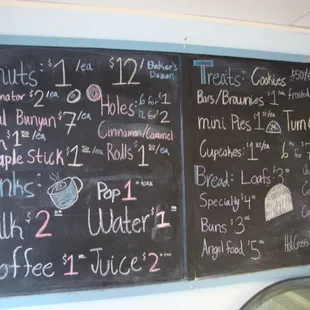 nuts: $1/ea $12/ Baker's Dozen
nator $2/ea Holes: 6 for $1
al Bunyan $7/ea 12 for $2
$1 /ea Cinnamon/Caramel
aple Stick $1 /ea Rolls $1 /ea
nks: Pop $1 + tax
lk $2 Water $1
offee $1 Juice $2
Treats: Cookies $.50/ea
Bars/Brownies $1 frosted
mini Pies $1 Turn
Cupcakes: $1 6 for
Bread: Loafs $3
Specialty $4
Buns $3
Angel food $5 Hot Cross